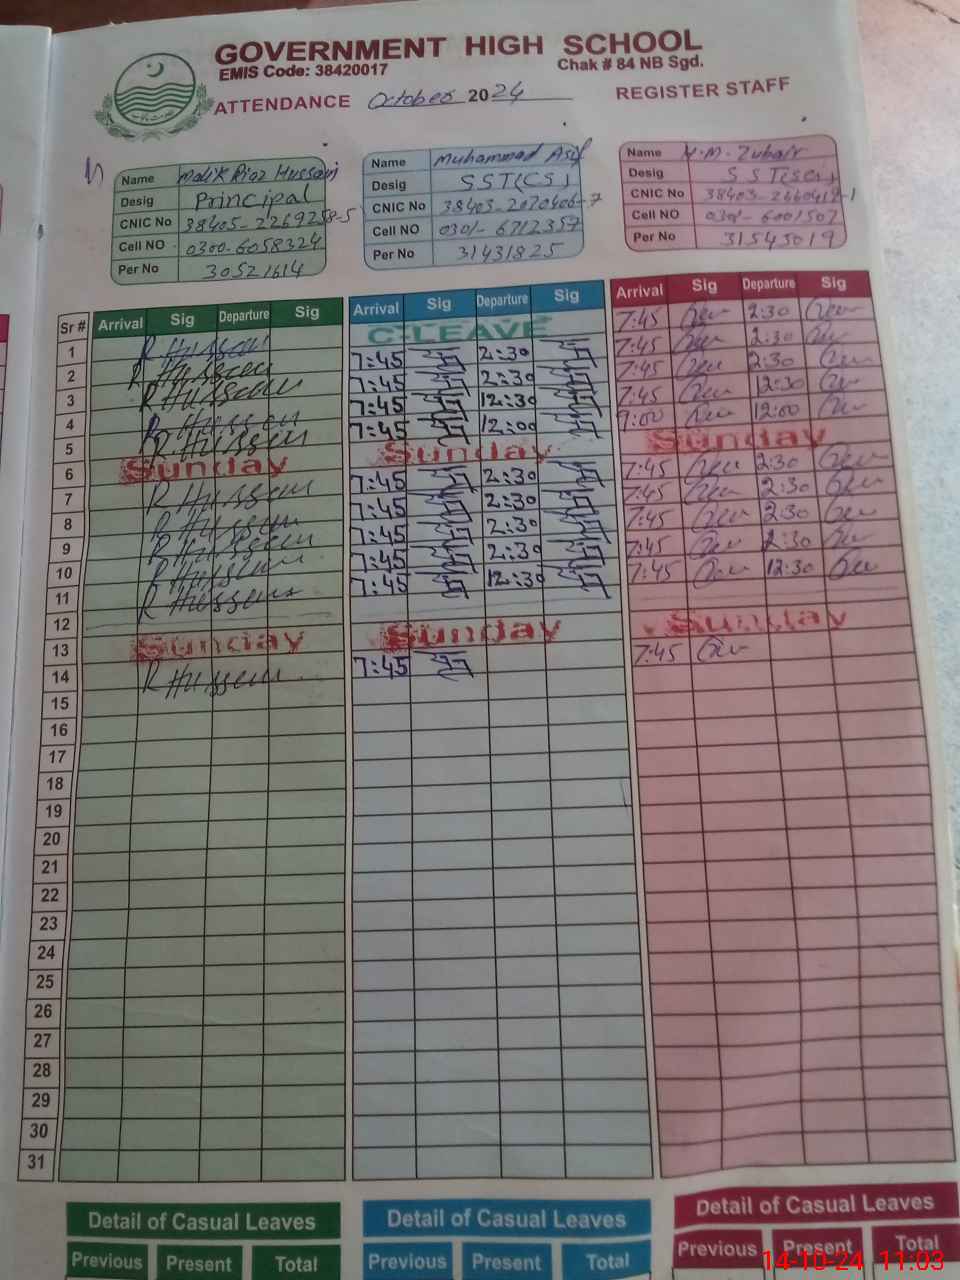 GOVERNMENT HIGH SCHOOL
EMIS Code: 38420017 Chak # 84 NB Sgd.
ATTENDANCE October 2024 REGISTER STAFF
Name Malik Riaz Hussain
Desig Principal
CNIC No 38405-2269258-5
Cell NO 0300-6058324
Per No 30521614
Name Muhammad Asif
Desig SST(CS)
CNIC No 38403-2070406-7
Cell NO 0301-6712357
Per No 31431825
Name M. Zubair
Desig SST(Sci)
CNIC No
Cell NO 0301-6001507
Per No 31545019
Sr # Arrival Sig Departure Sig Arrival Sig Departure Sig Arrival Sig Departure Sig
1 R Hussain C-LEAVE 7:45 2:30
2 R Hussain 7:45 2:30 7:45 2:30
3 R Hussain 7:45 2:30 7:45 2:30
4 R Hussain 7:45 12:30 7:45 12:30
5 R Hussain 7:45 12:00 9:00 12:00
6 Sunday Sunday Sunday
7 R Hussain 7:45 2:30 7:45 2:30
8 R Hussain 7:45 2:30 7:45 2:30
9 R Hussain 7:45 2:30 7:45 2:30
10 R Hussain 7:45 2:30 7:45 2:30
11 R Hussain 7:45 12:30 7:45 12:30
12
13 Sunday Sunday Sunday
14 R Hussain 7:45 7:45
15
16
17
18
19
20
21
22
23
24
25
26
27
28
29
30
31
Detail of Casual Leaves Detail of Casual Leaves Detail of Casual Leaves
Previous Present Total Previous Present Total Previous Present Total
14-10-24 11:03